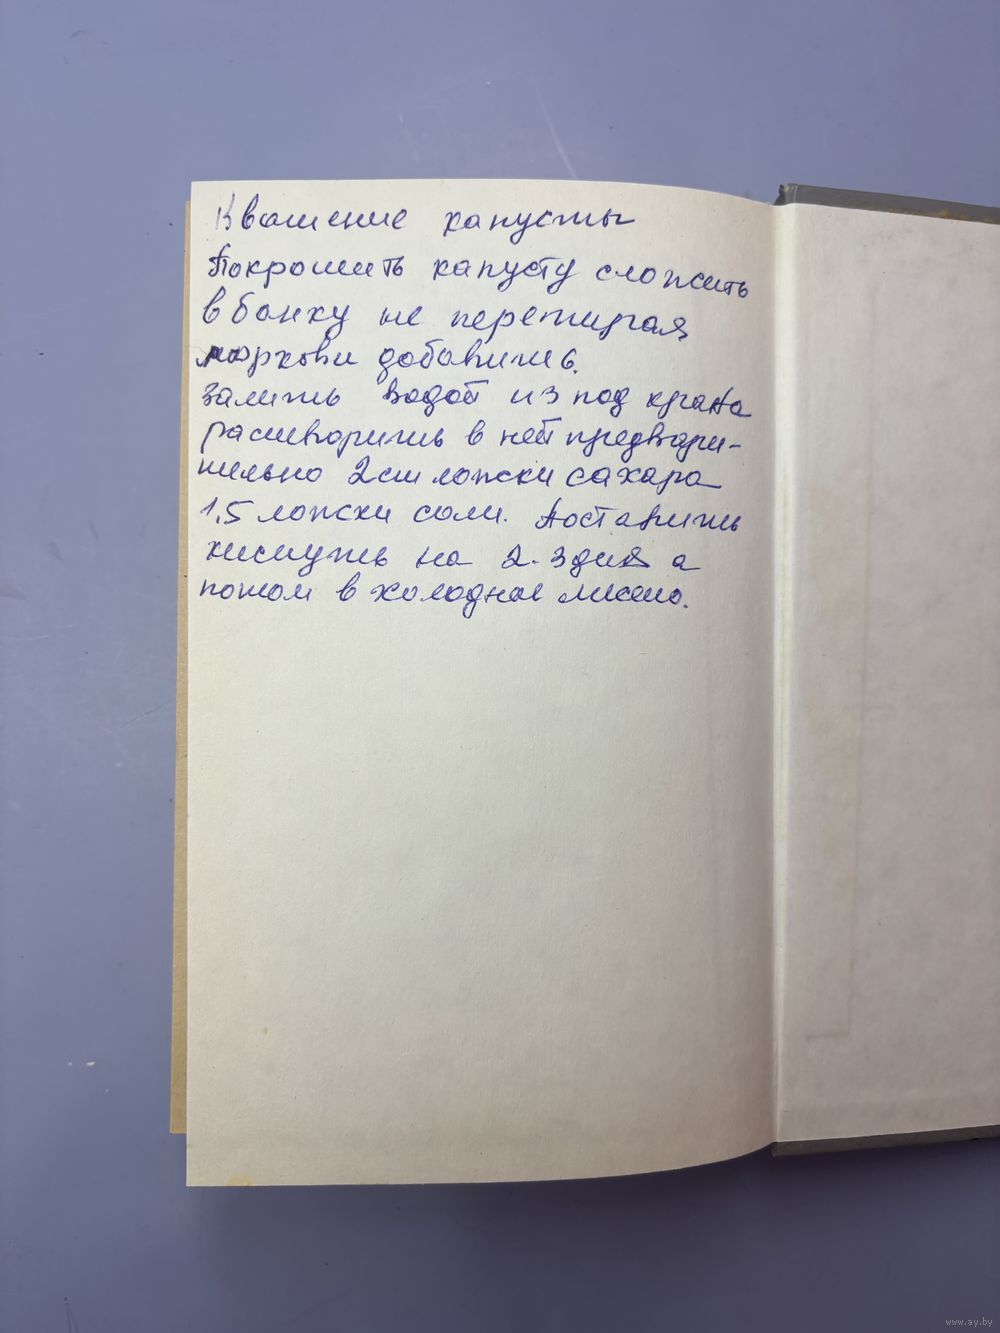 Квашение капусты
Покрошить капусту сложить
в банку не перетирая
моркови добавить.
Залить водой из под крана
растворить в ней предвари-
тельно 2 ст ложки сахара
1,5 ложки соли. Поставить
киснуть на 2-3 дня а
потом в холодное место.
www.ay.by